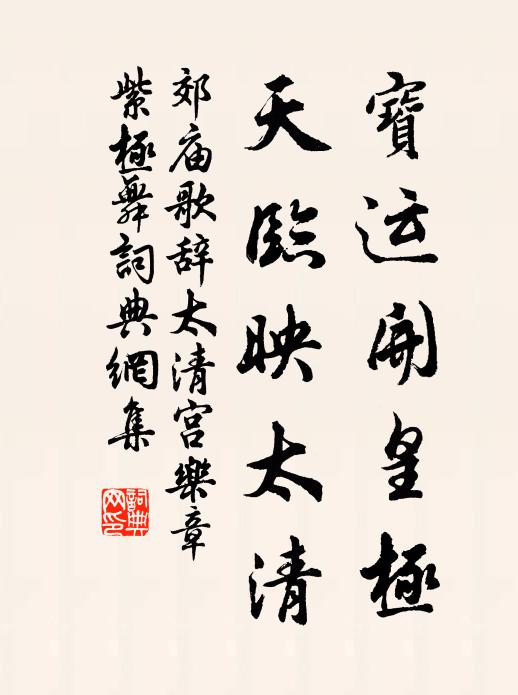 寶运開皇極
天臨映太清
郊庙歌辞太清宫樂章
紫極舞詞典網集
詞典网印